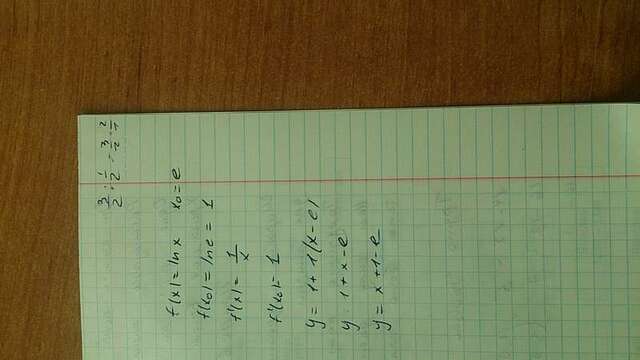 3/2 : 1/2 = 3/2 · 2/1
f(x) = ln x   x₀ = e
f(x₀) = ln e = 1
f'(x) = 1/x
f'(x₀) = 1
y = 1 + 1(x - e)
y 1 + x - e
y = x + 1 - e